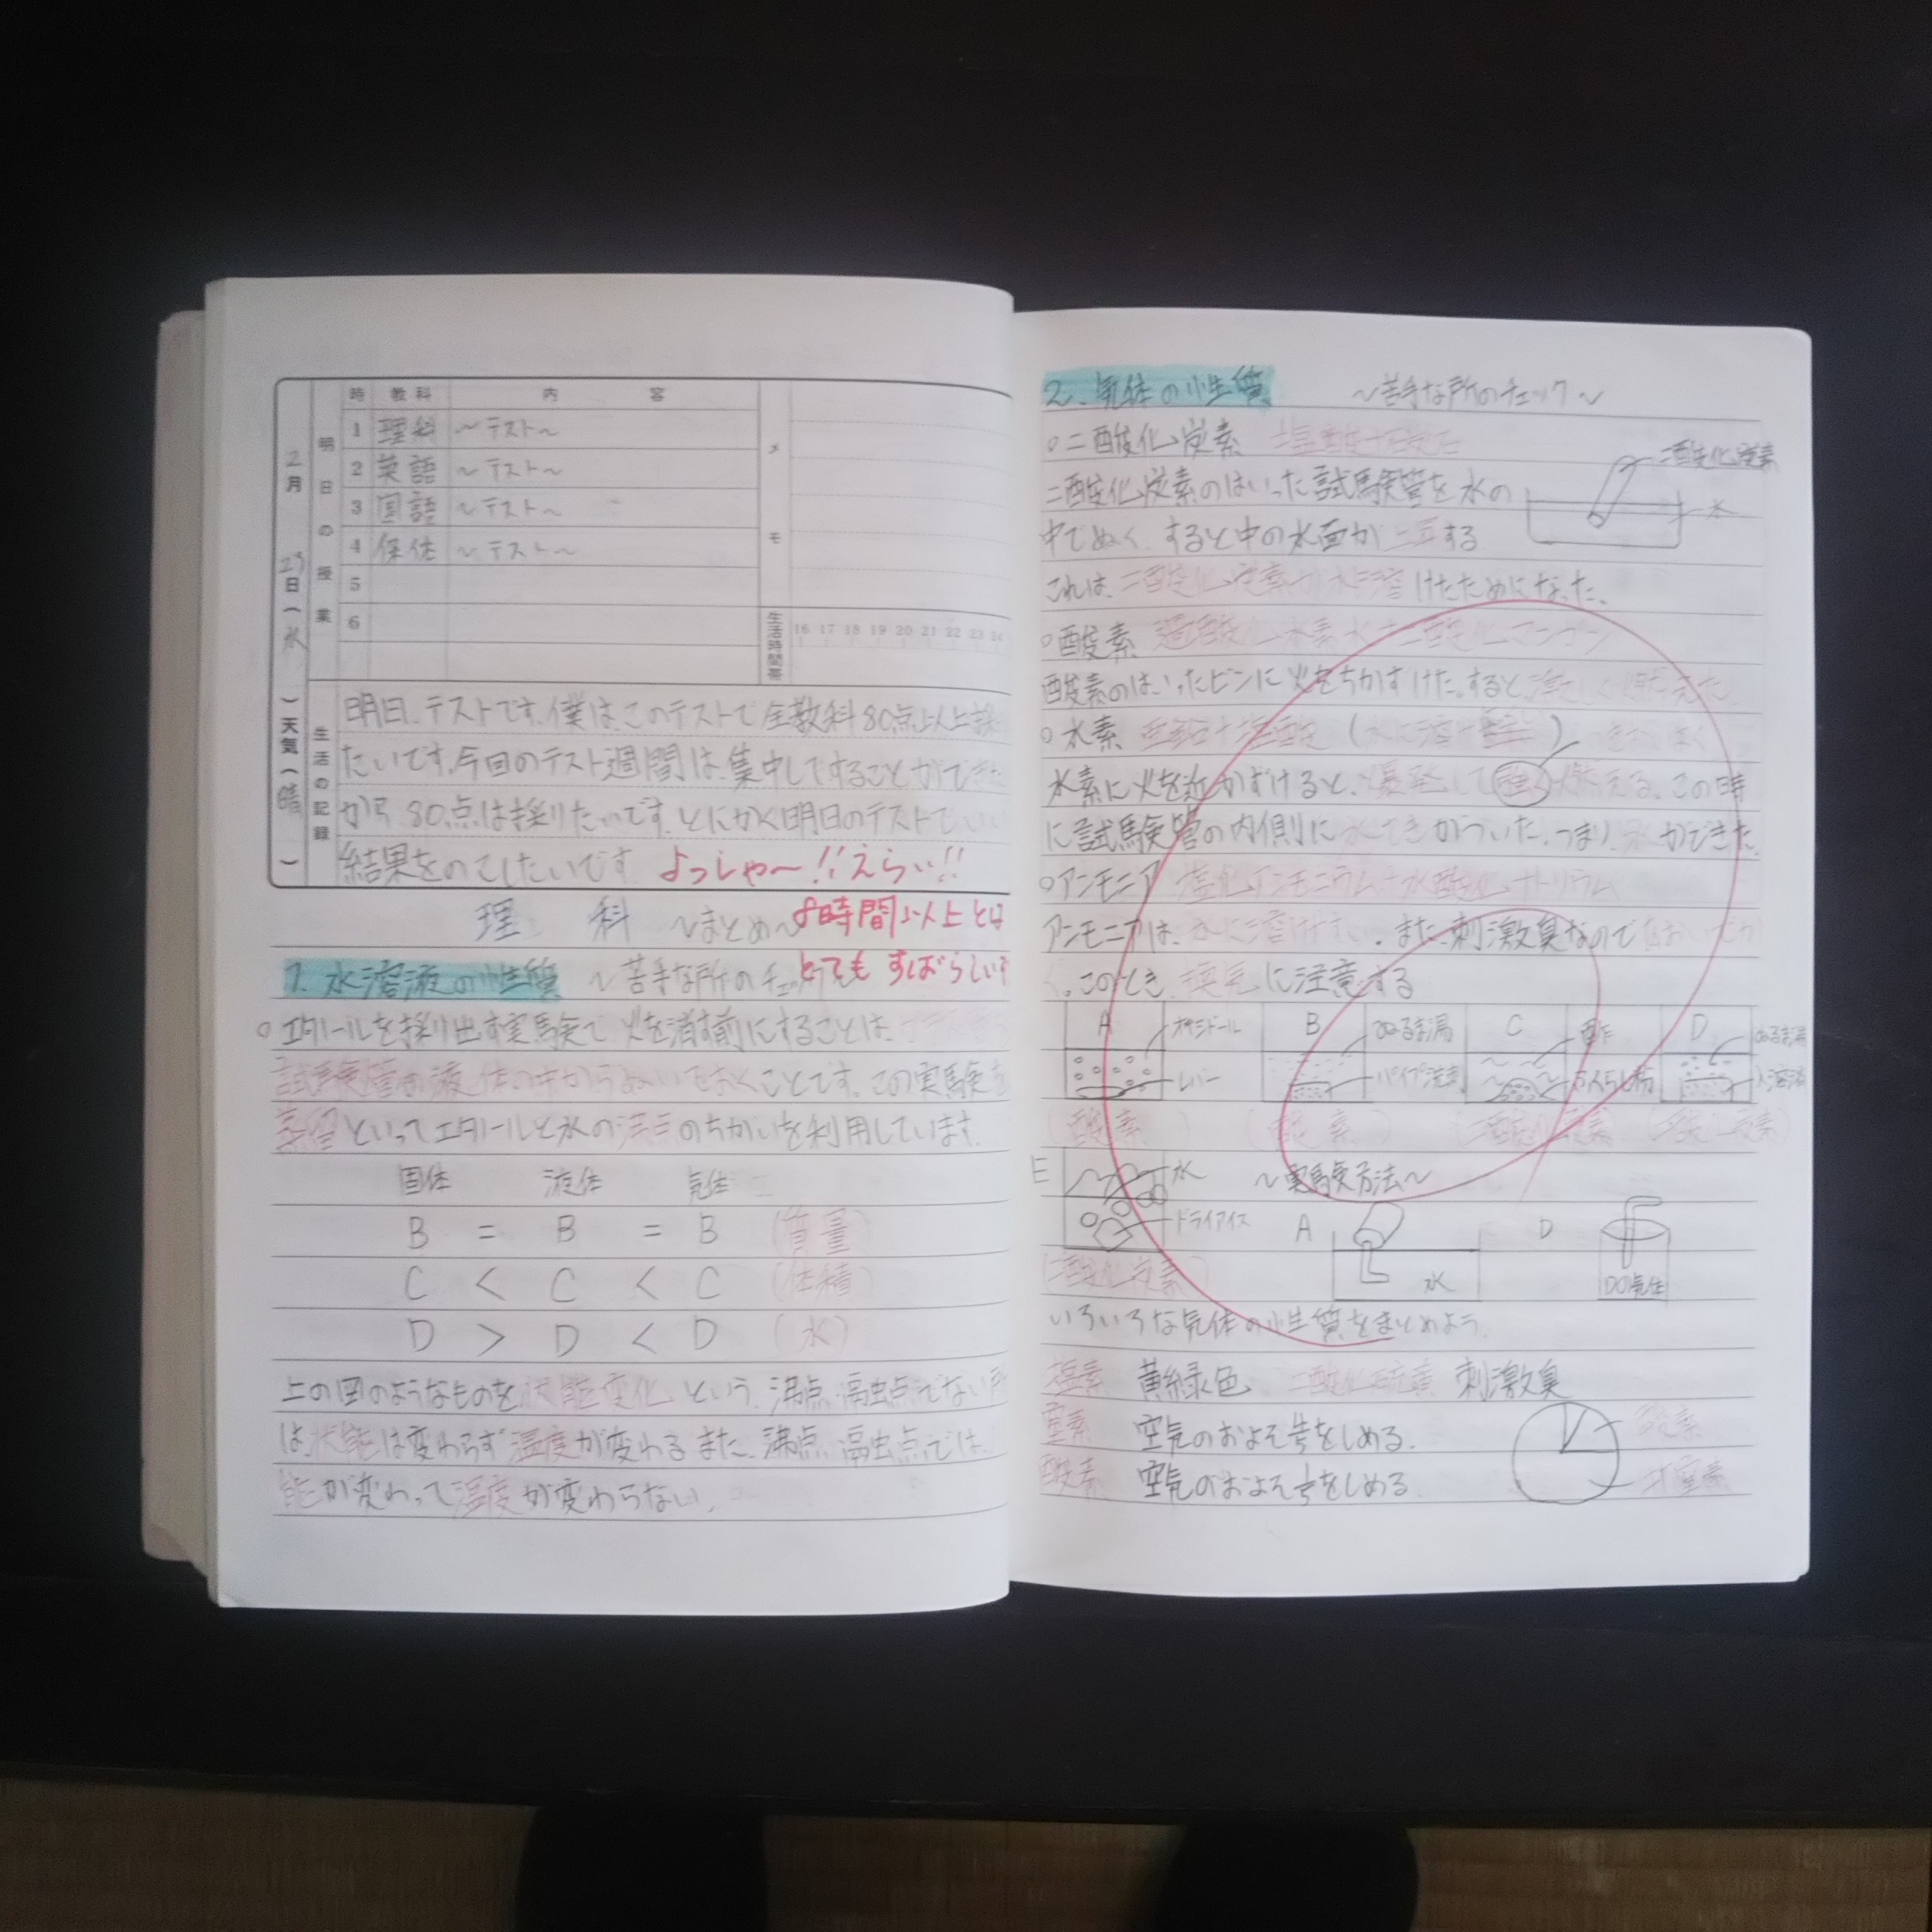 2月 23日(水)天気(晴)
明日の授業
時 教科 内容
メモ
1 理科 ~テスト~
2 英語 ~テスト~
3 国語 ~テスト~
4 保体 ~テスト~
5
6
生活時間帯 16 17 18 19 20 21 22 23 24
生活の記録
明日、テストです。僕は、このテストで全教科80点以上採
たいです。今回のテスト週間は、集中してすることができた
から80点は採りたいです。とにかく明日のテストでいい
結果をのこしたいです。よっしゃ〜!!えらい!!
理 科 ~まとめ~
8時間以上とは
とても すばらしい
1. 水溶液の性質 ~苦手な所のチェッ
○エタノールを採り出す実験で火を消す前にすることは、
試験管を液体の中からぬいておくことです。この実験を
蒸留といってエタノールと水の沸点のちがいを利用しています。
固体 液体 気体
B = B = B (質量)
C < C < C (体積)
D > D < D (水)
上の図のようなものを状態変化という。沸点、融点でない
は、状態は変わらず温度が変わる。また、沸点、融点では
態が変わって温度が変わらない。
2. 気体の性質 ~苦手な所のチェック~
○二酸化炭素
二酸化炭素のはいった試験管を水の
中でぬく。すると中の水面が上昇する
二酸化炭素
水
これは、二酸化炭素が水に溶けたためになった。
○酸素 過酸化水素水+二酸化マンガン
酸素のはいったビンに火をちかずけた。すると、激しく燃えた。
○水素 亜鉛+塩酸
水素に火を近かずけると、爆発して 燃える。この時
に試験管の内側に水てきがついた。つまり、水ができた。
○アンモニア 塩化アンモニウム+水酸化ナトリウム
アンモニアは、水に溶けやすい。また、刺激臭なので
このとき、換気に注意する
A オキシドール レバー
B ぬるま湯 パイプ洗
C
D ぬるま湯 入浴剤
(酸素) (酸素) (二酸化炭素) (二酸化炭素)
E 水 ドライアイス
(二酸化炭素)
~実験方法~
A 水
D
いろいろな気体の性質をまとめよう。
塩素 黄緑色 二酸化硫黄 刺激臭
窒素 空気のおよそ4/5をしめる。
酸素 空気のおよそ1/5をしめる。
酸素
窒素